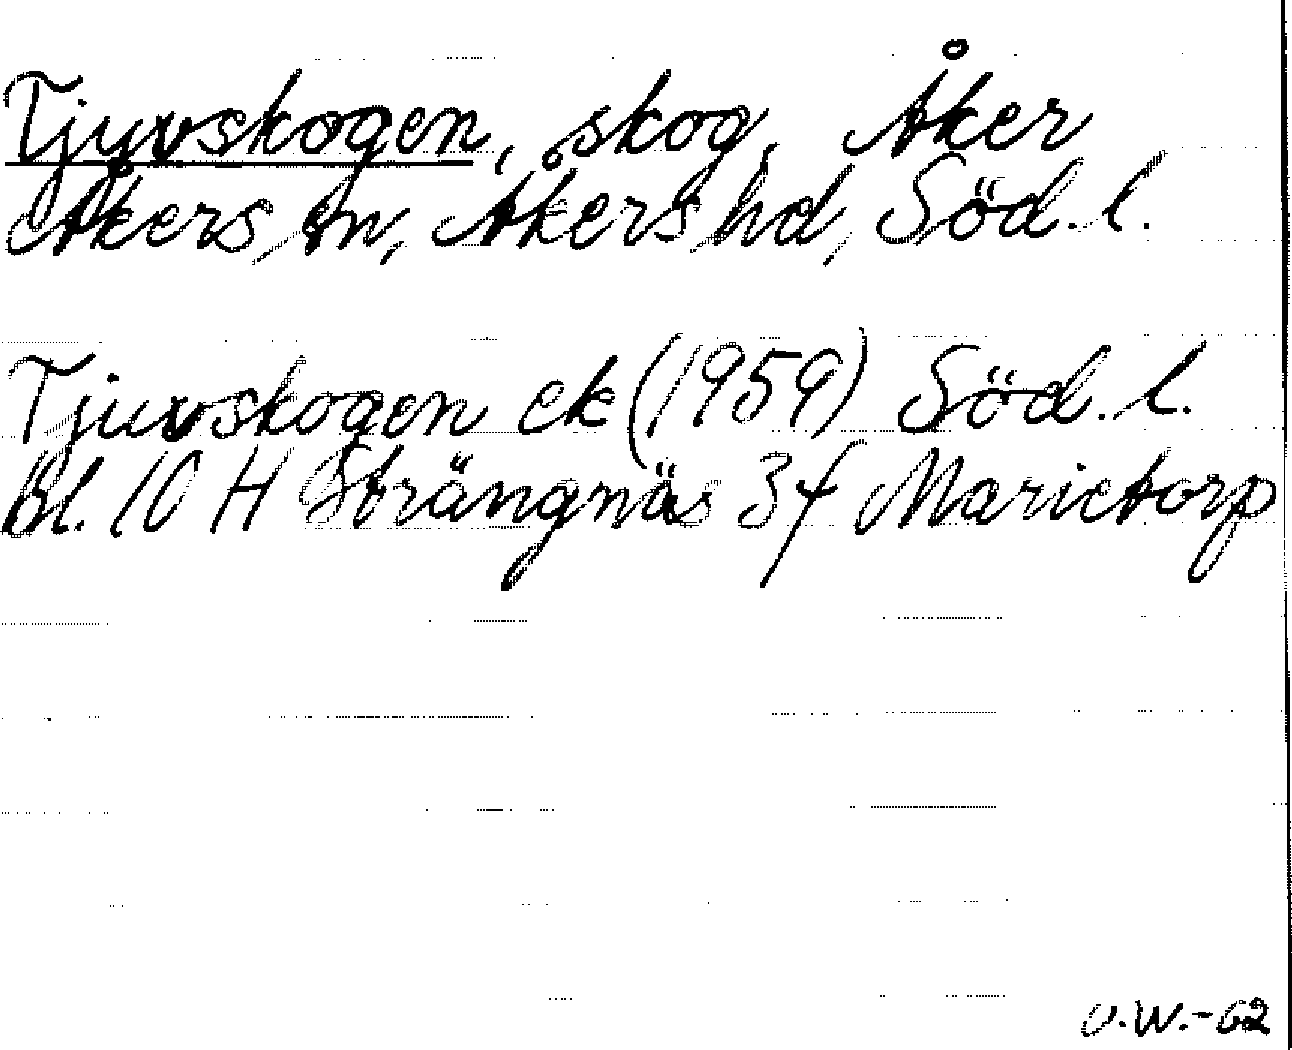 Tjuvskogen, skog, Åker
Åkers sn, Åkers hd, Söd. l.
Tjuvskogen ek (1959) Söd. l.
Bl. 10 H Strängnäs 3f Marietorp
U.W.-62